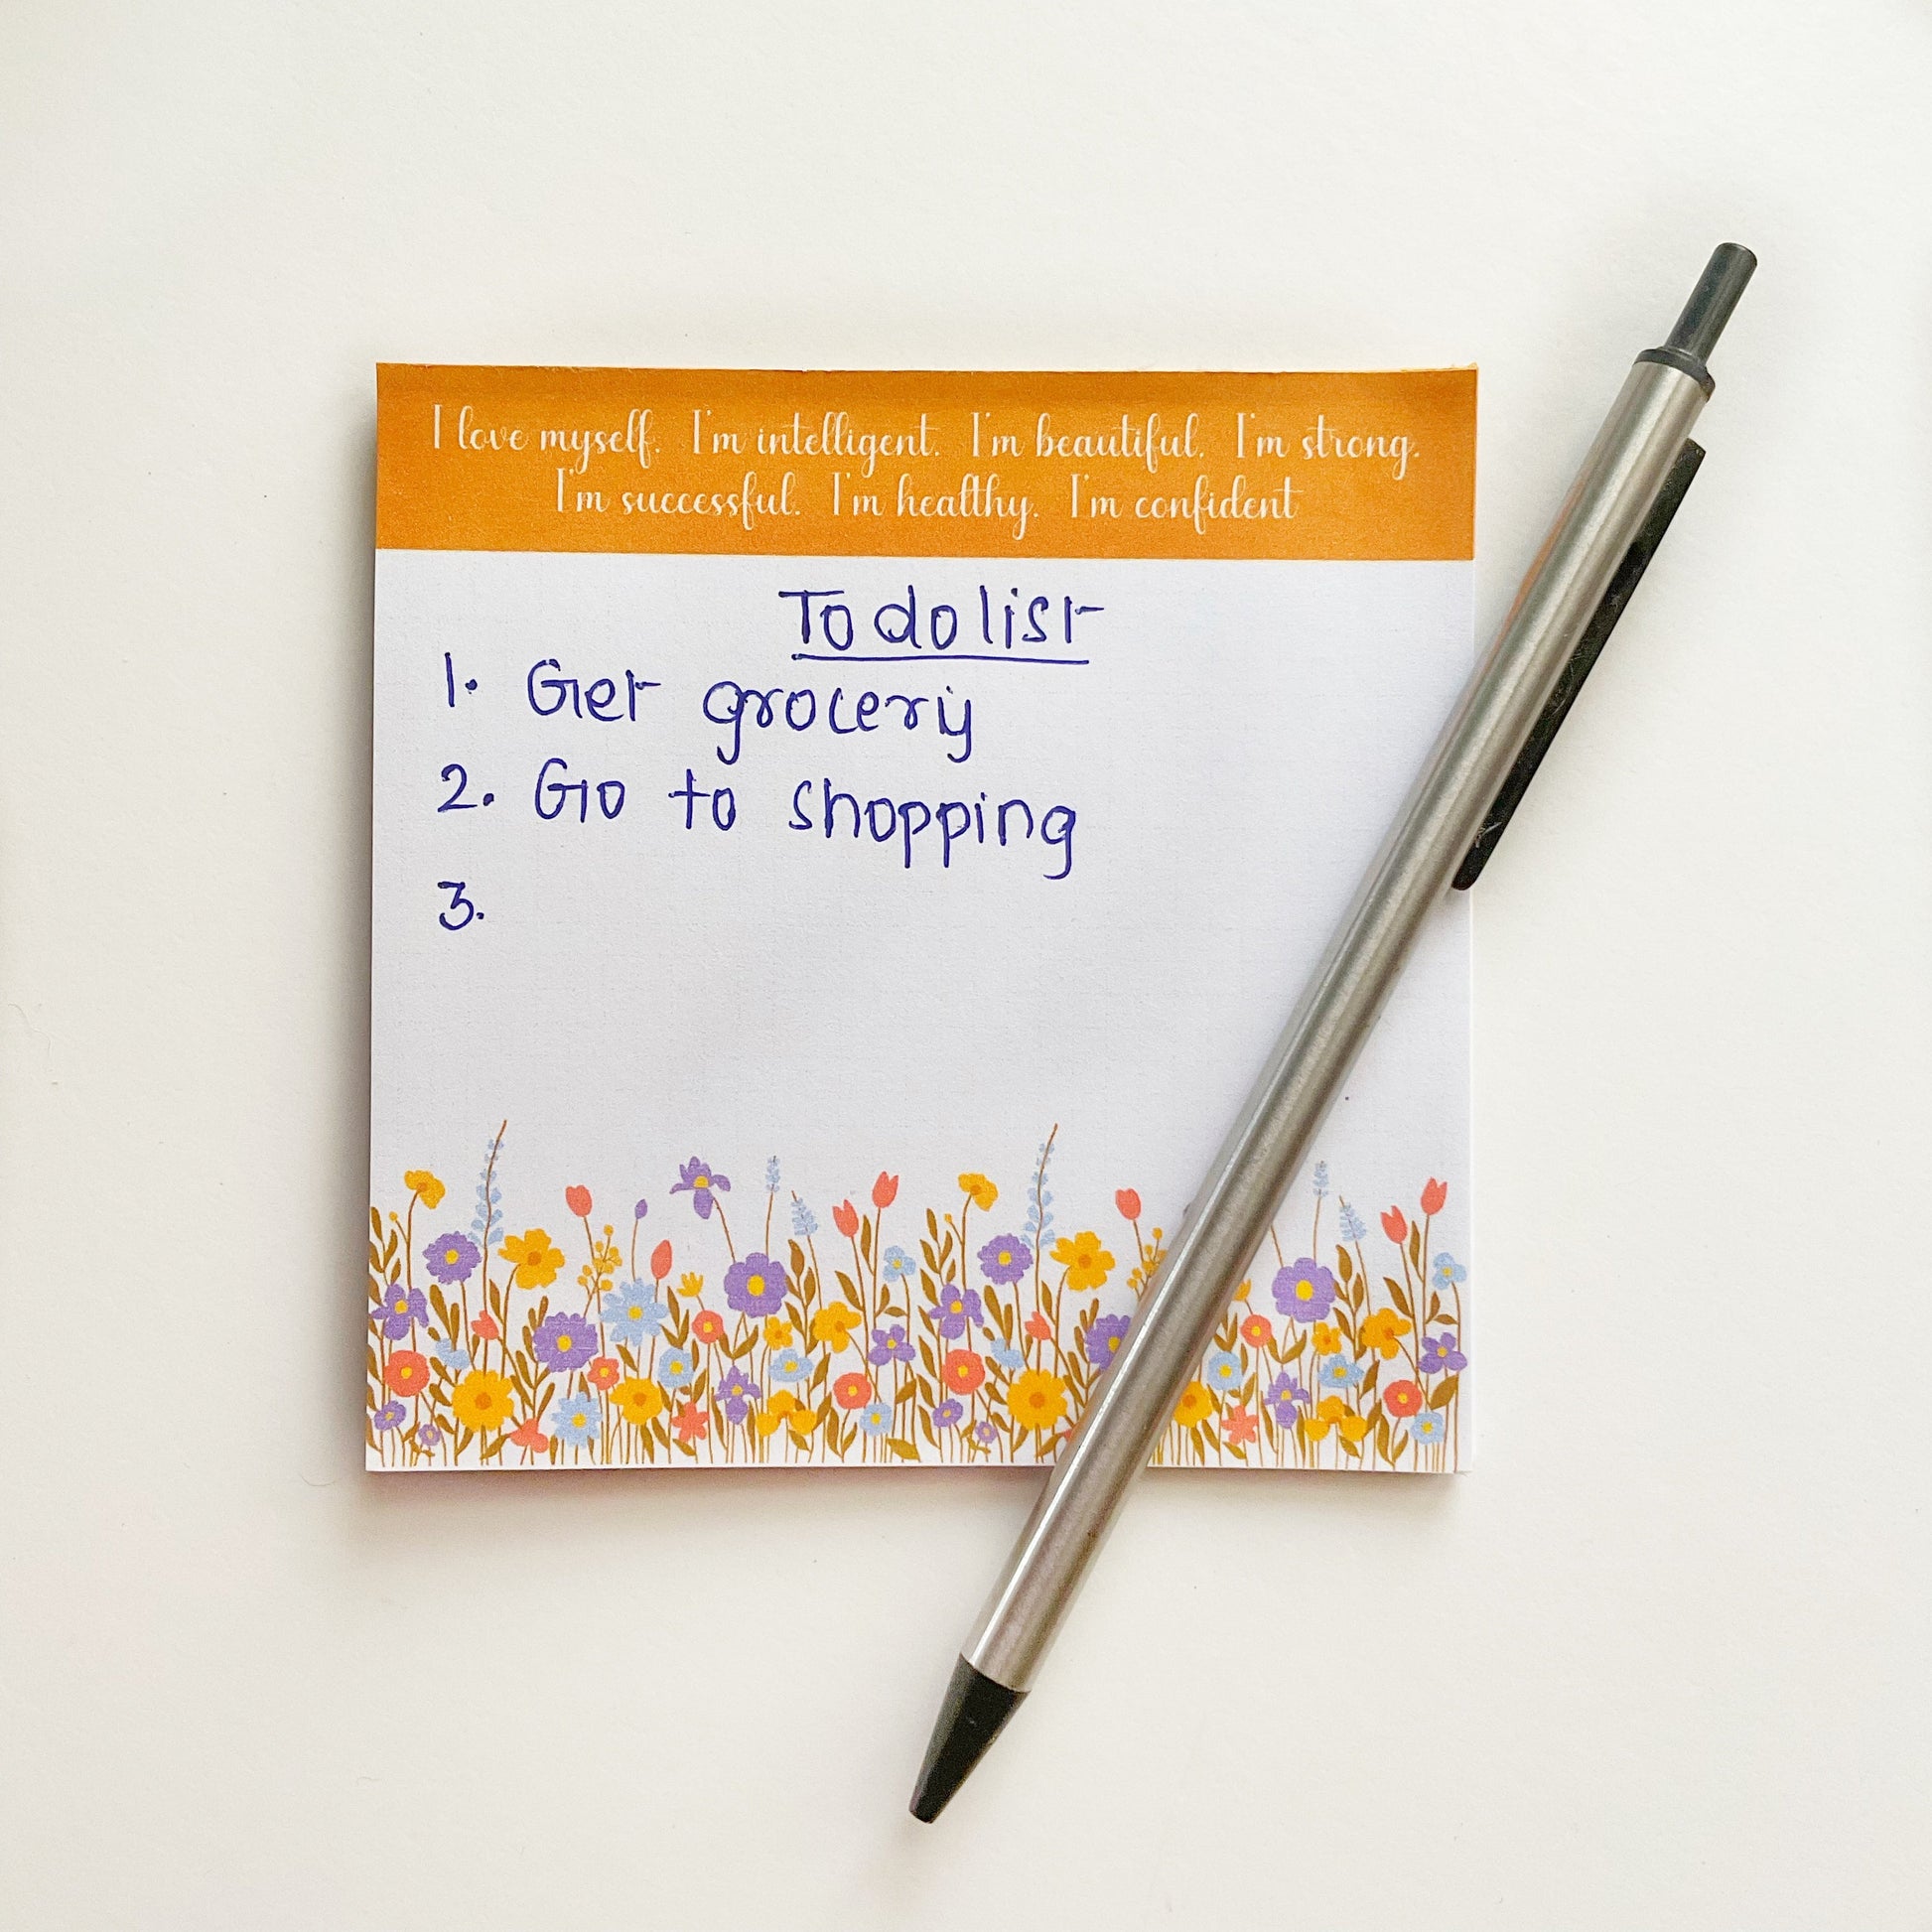 I love myself. I'm intelligent. I'm beautiful. I'm strong.
I'm successful. I'm healthy. I'm confident
To do list
1. Get grocery
2. Go to shopping
3.